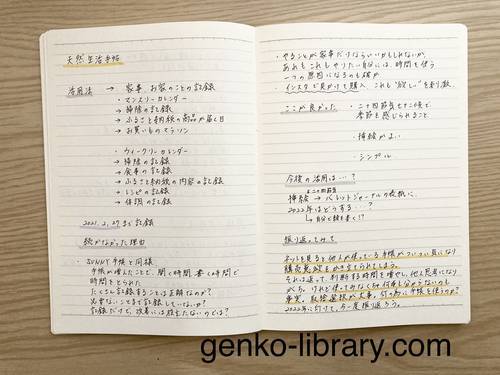 天然生活手帖
活用法 → 家事、お家のことの記録
・マンスリーカレンダー
→ 掃除の記録
→ ふるさと納税の商品が届く日
→ お買いものマラソン
・ウィークリーカレンダー
→ 掃除の記録
→ 食事の記録
→ ふるさと納税の内容の記録
→ レシピの記録
→ 体調の記録
2021.2.27まで記録
続かなかった理由
・SUNNY手帳と同様
手帳が増えたことで、開く時間、書く時間で
時間をとられた
たくさん記録することは正解なのか?
必要ないことまで記録していないか?
記録だけして、改善には役立たないのでは?
・やることが家事だけならいいかもしれないが、
あれもこれもやりたい自分には、時間を使う
一つの原因になるのも確か
・インスタで見かけて購入。これも"欲しい"を刺激。
ここが良かった
・二十四節気七十二候で、
季節を感じられること
・挿絵がよい
・シンプル
今後の活用は…?
挿絵 → バレットジャーナルの表紙に
2022年はどうする…?
→ 自分で絵を書く!?
振り返ってみて
ネットを見ると他人が使っている手帳がついつい気になり
購買意欲をかき立てられてしまう。
それは返って、判断する時間を増やし、他人思考になり
がち。けれど使ってみなくちゃ何事も分からないのも
事実。取捨選択が大事。何の為に手帳を使うのか?
2022年に向けて、今一度振り返ろう。
genko-library.com